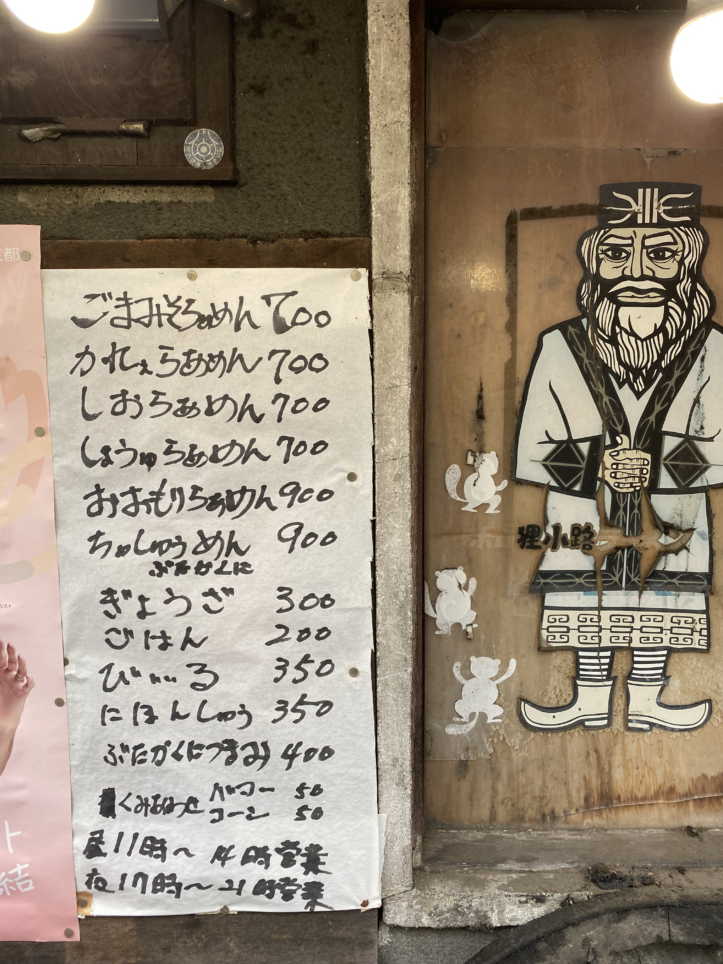 ごまみそらぁめん 700
かれぇらぁめん 700
しおらぁめん 700
しょうゆらぁめん 700
おおもりらぁめん 900
ちゃしゅうめん 900
ぶたかくに
ぎょうざ 300
ごはん 200
びぃぃる 350
にほんしゅう 350
ぶたかくにつまみ 400
くみあわせ バター 50
コーン 50
昼11時〜14時営業
夜17時〜21時営業
狸小路
都
リスト
ト
結